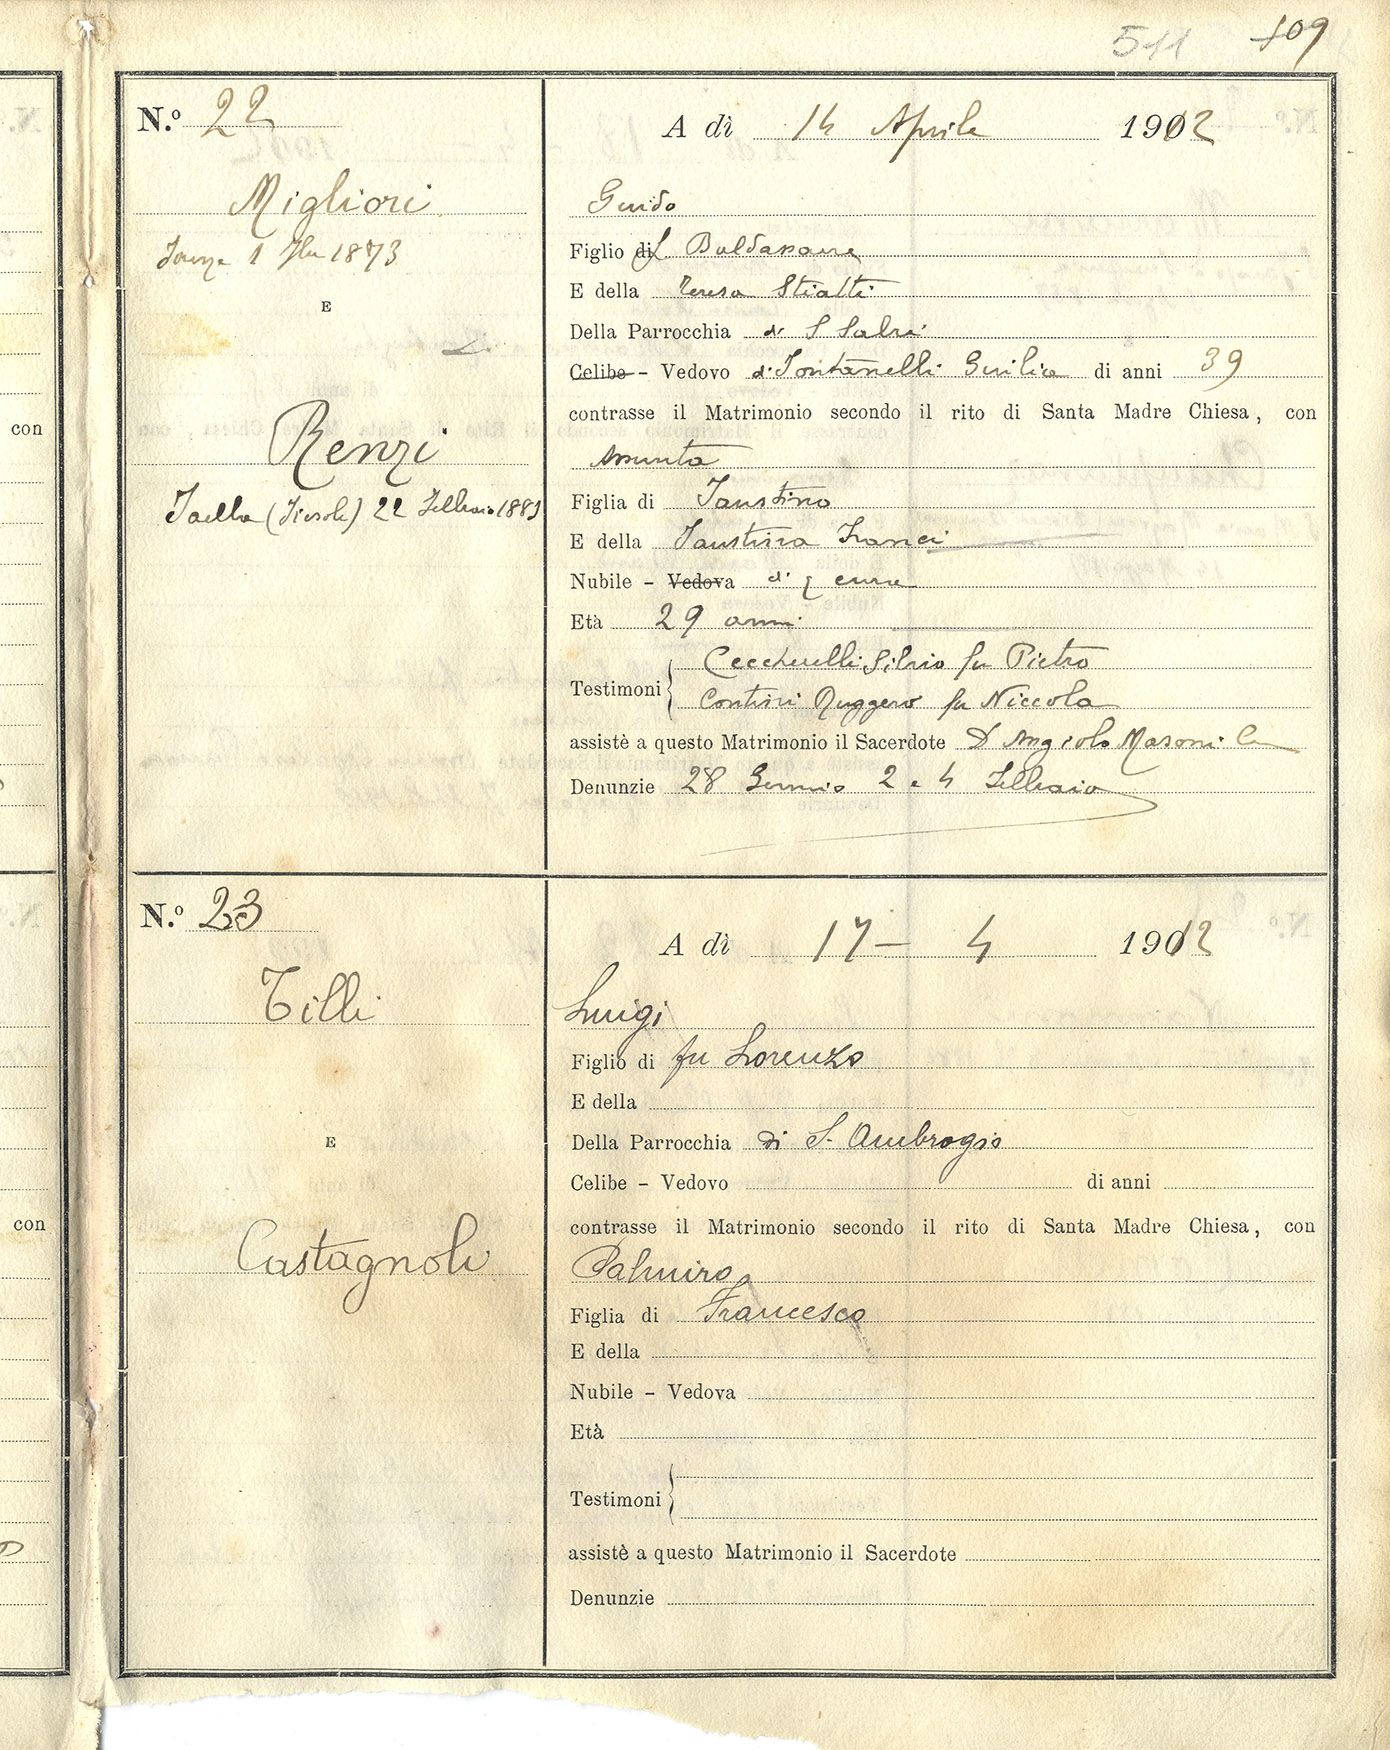 511 109
N.º 22
Migliori
1873
E
Renzi
(Fiesole) 22 Febbraio 1883
A dì 14 Aprile 1912
Guido
Figlio di Baldassarre
E della Teresa Stiatti
Della Parrocchia di S Salvi
Celibe - Vedovo di Fontanelli Giulia di anni 39
contrasse il Matrimonio secondo il rito di Santa Madre Chiesa, con
Assunta
Figlia di Faustino
E della Faustina Franci
Nubile - Vedova di q cura
Età 29 anni
Testimoni Ceccherelli Silvio fu Pietro
Contini Ruggero fu Niccola
assistè a questo Matrimonio il Sacerdote D Angiolo Masoni
Denunzie 28 Gennaio 2 e 4 Febbraio
N.º 23
Tilli
E
Castagnoli
A dì 17 - 4 1912
Luigi
Figlio di fu Lorenzo
E della
Della Parrocchia di S. Ambrogio
Celibe - Vedovo di anni
contrasse il Matrimonio secondo il rito di Santa Madre Chiesa, con
Palmira
Figlia di Francesco
E della
Nubile - Vedova
Età
Testimoni
assistè a questo Matrimonio il Sacerdote
Denunzie
con
con